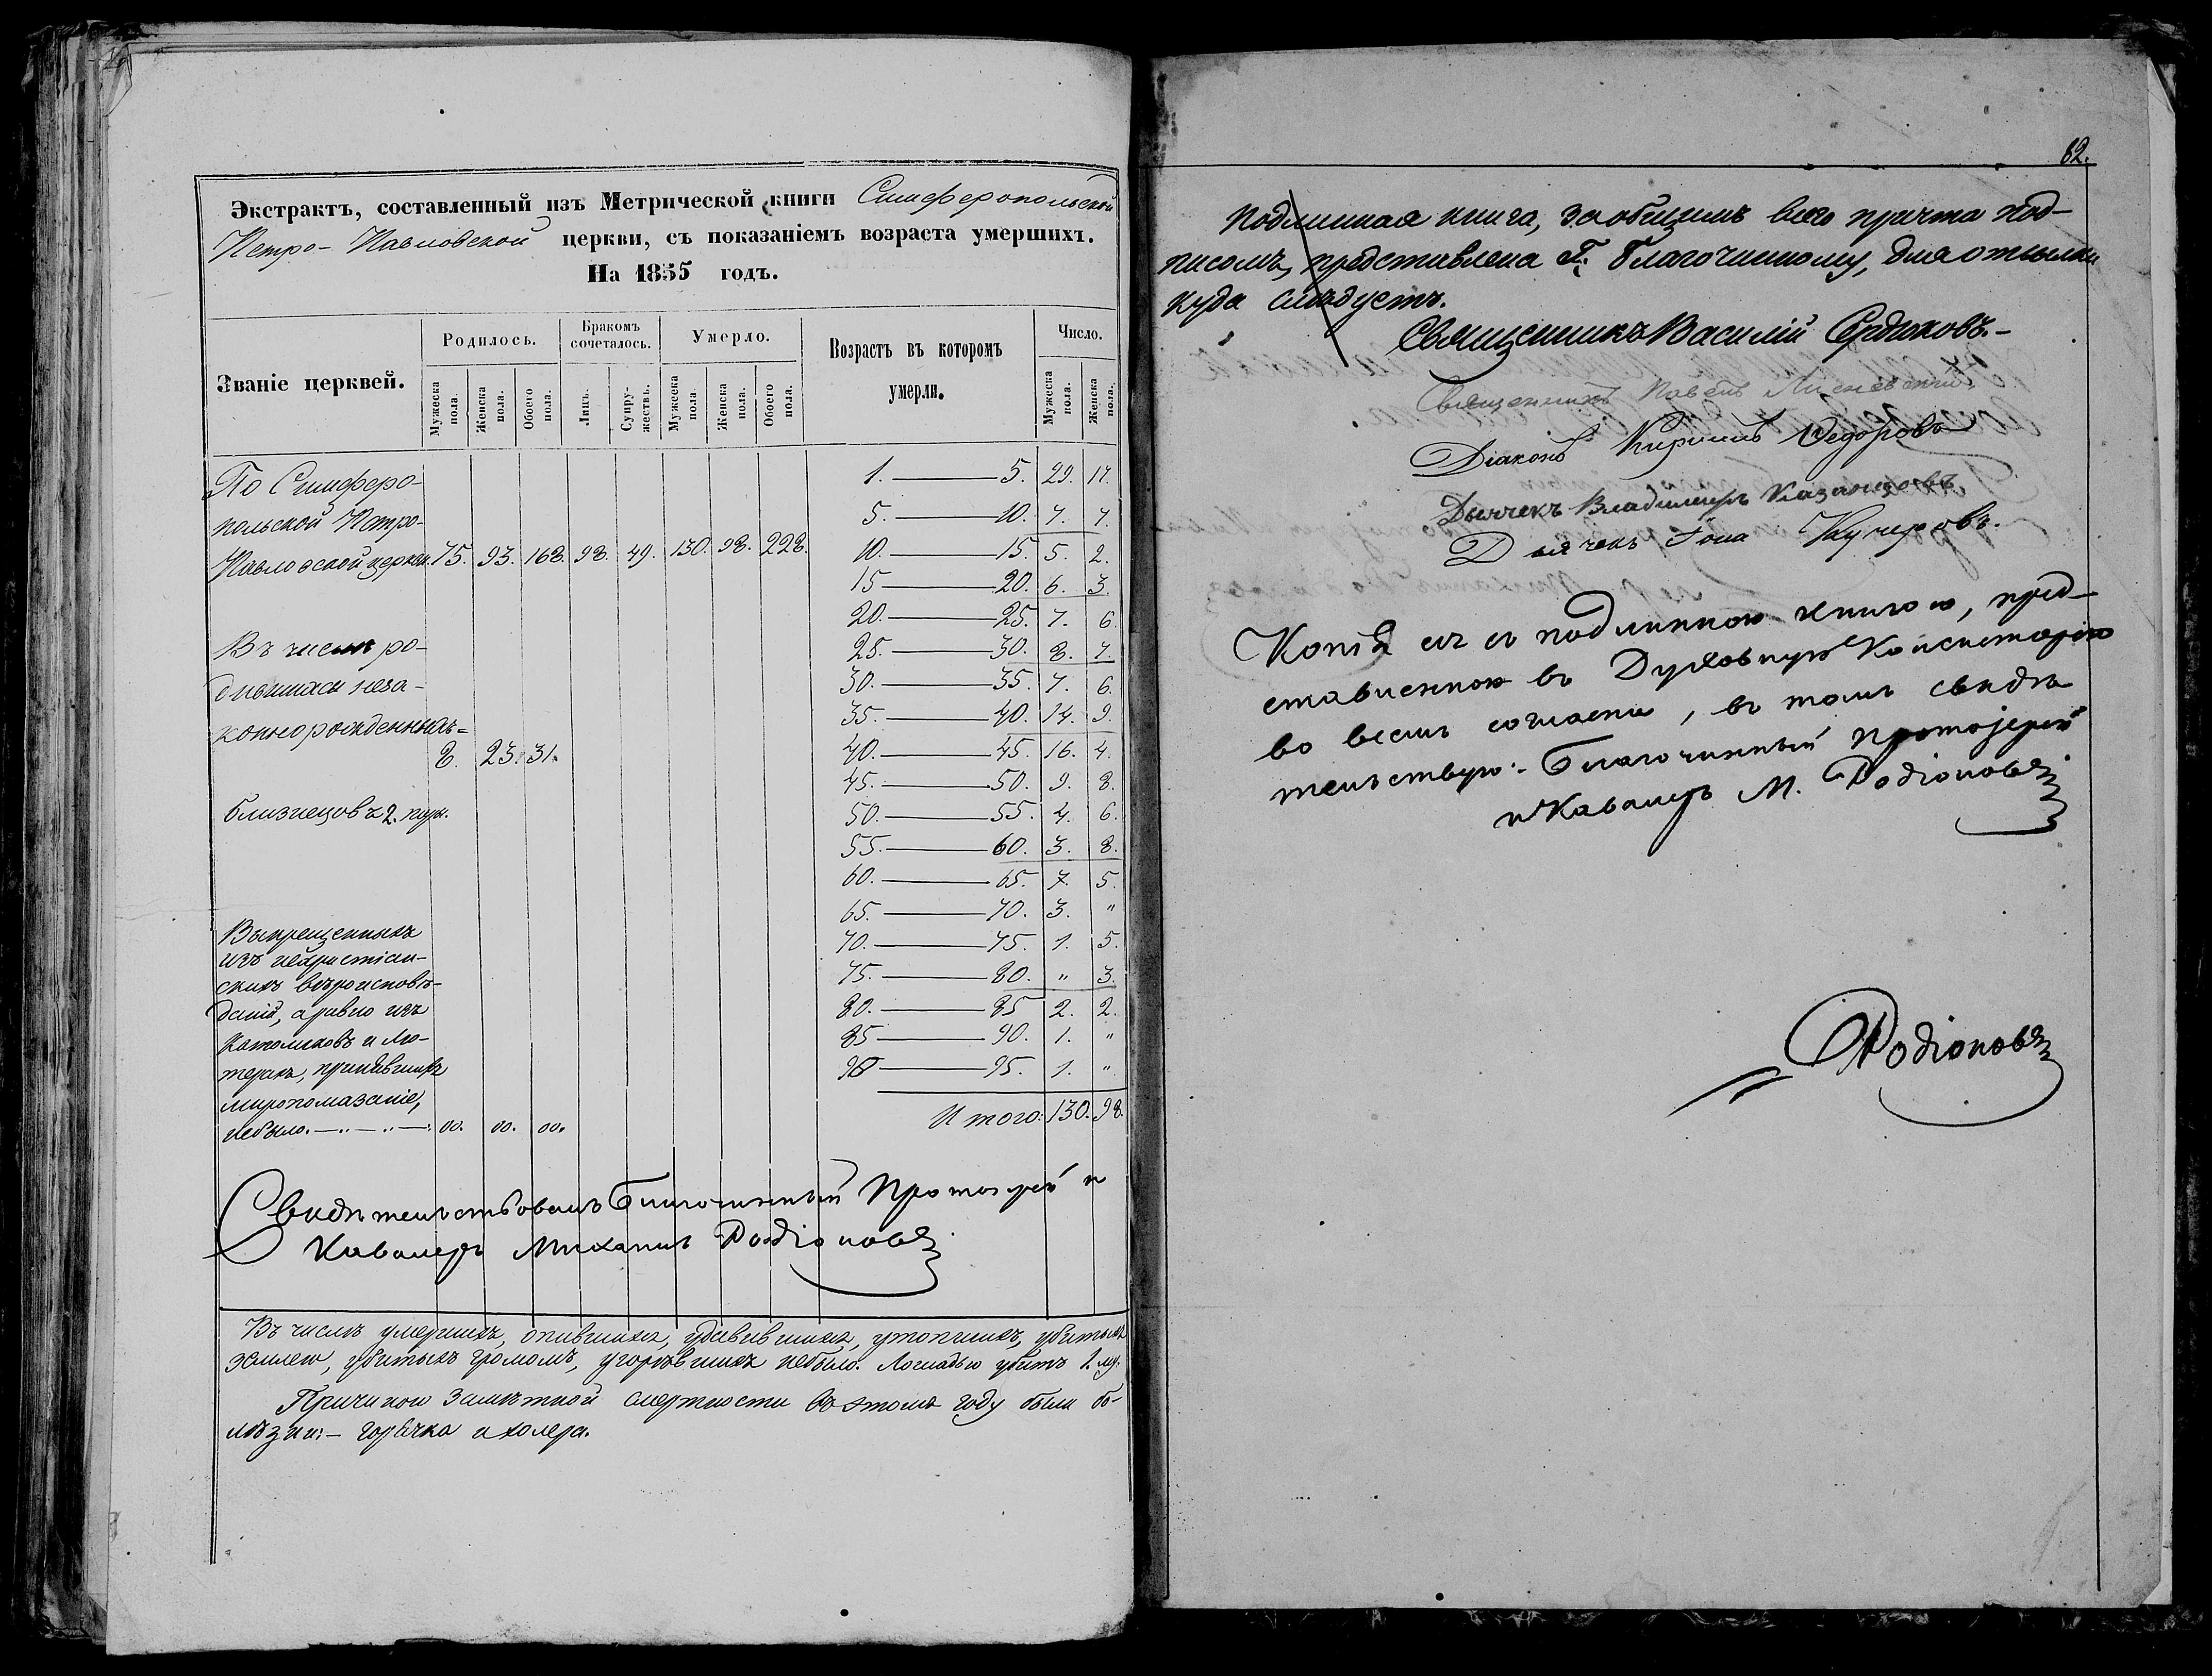 Экстрактъ, составленный изъ Метрической книги Симферопольской
Петро-Павловской церкви, съ показаніемъ возраста умершихъ.
На 1855 годъ.
Званіе церквей.
Родилось.
Бракомъ сочеталось.
Умерло.
Возрастъ въ которомъ умерли.
Число.
Мужеска пола.
Женска пола.
Обоего пола.
Лицъ.
Супружествъ.
Мужеска пола.
Женска пола.
Обоего пола.
Мужеска пола.
Женска пола.
По Симферо-
польской Петро-
Павловской церкви. 75. 93. 168. 98. 49. 130. 98. 228.
Въ числѣ ро-
дившихся неза-
коннорожденныхъ=
8. 23. 31.
близнецовъ 2. пары.
Выкрещенныхъ
изъ нехристіан-
скихъ вѣроисповѣ-
даній, а равно изъ
католиковъ и лю-
теранъ, принявшихъ
миропомазаніе,
небыло. — .. — .. — : 00. 00. 00.
1. — 5. 29. 17.
5. — 10. 7. 7.
10. — 15. 5. 2.
15 — 20. 6. 3.
20. — 25. 7. 6.
25. — 30. 8. 7.
30. — 35. 7. 6.
35. — 40. 14. 9.
40. — 45. 16. 4.
45. — 50. 9. 8.
50. — 55. 4. 6.
55. — 60. 3. 8.
60. — 65. 7. 5.
65. — 70. 3. "
70. — 75. 1. 5.
75. — 80. " 3.
80. — 85 2. 2.
85 — 90. 1. "
90 — 95. 1. "
Итого: 130. 98.
Свидѣтельствовалъ Благочинный Протоіерей и
Кавалеръ Михаилъ Родіоновъ
Въ числѣ умершихъ, опившихся, удавившихся, утопшихъ, убитыхъ
землею, убитыхъ громомъ, угорѣвшихъ небыло. Лошадью убитъ 1. му.
Причиною замѣтной смертности въ этомъ году были бо-
лѣзни:- горячка и холера.
82.
Подлинная книга, за общимъ всего причта под-
писомъ, представлена Г. Благочинному, для отсылки
куда слѣдуетъ.
Священникъ Василій Сердюковъ.-
Священникъ Павелъ
Діаконъ Кириллъ Ѳедоровъ
Дьячекъ Владимиръ Казанцовъ
Дьячекъ Іона Кучеровъ.
Копія сія съ подлинною книгою, пред-
ставленною въ Духовную Консисторію
во всемъ согласна, въ томъ свидѣ
тельствую:- Благочинный Протоіерей
и Кавалеръ М. Родіоновъ
Родіоновъ